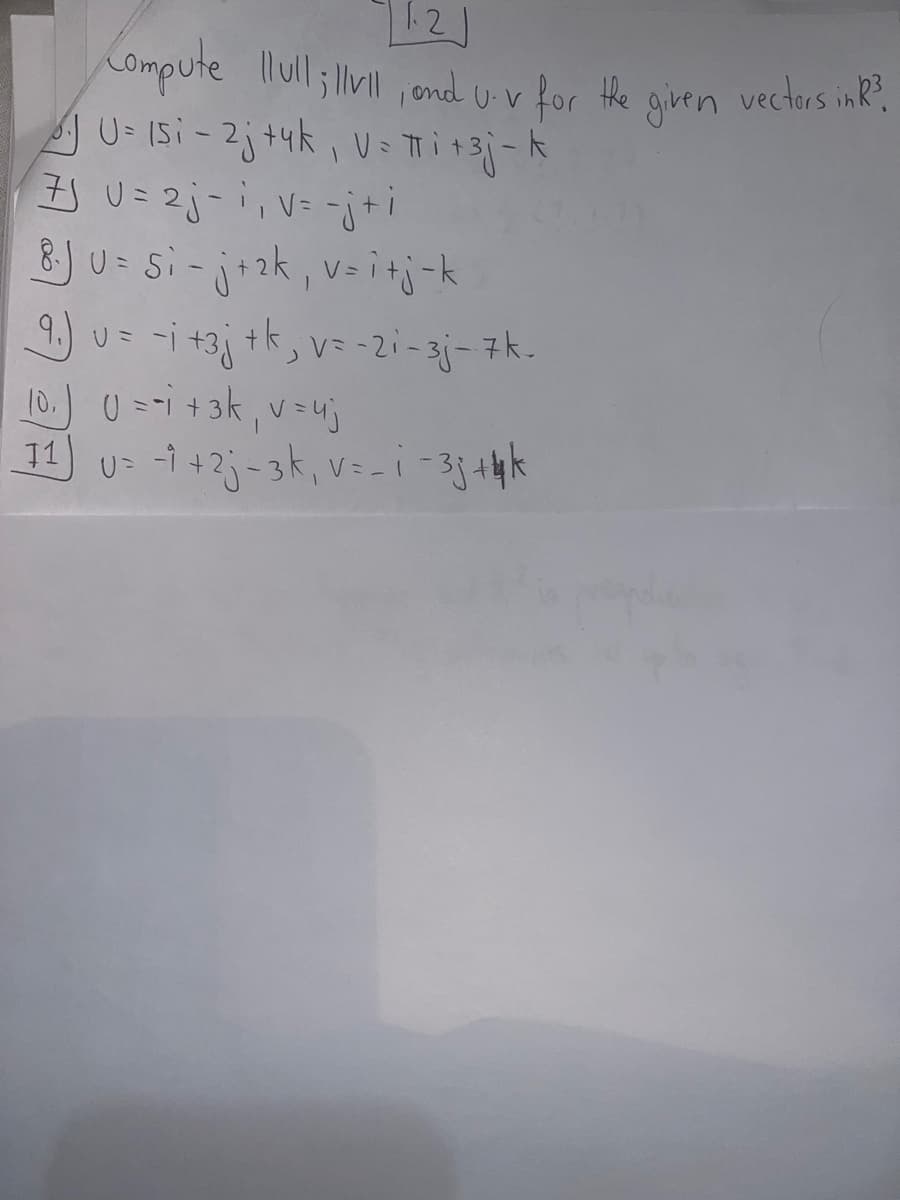 1.2
Compute ||u||; ||v||, and u·v for the given vectors in R³.
6.) U = 15i - 2j + 4k, V = πi + 3j - k
7) U = 2j - i, V = -j + i
8.) U = 5i - j + 2k, V = i + j - k
9.) U = -i + 3j + k, V = -2i - 3j - 7k.
10.) U = -i + 3k, V = 4j
11) U = -i + 2j - 3k, V = -i - 3j + 4k